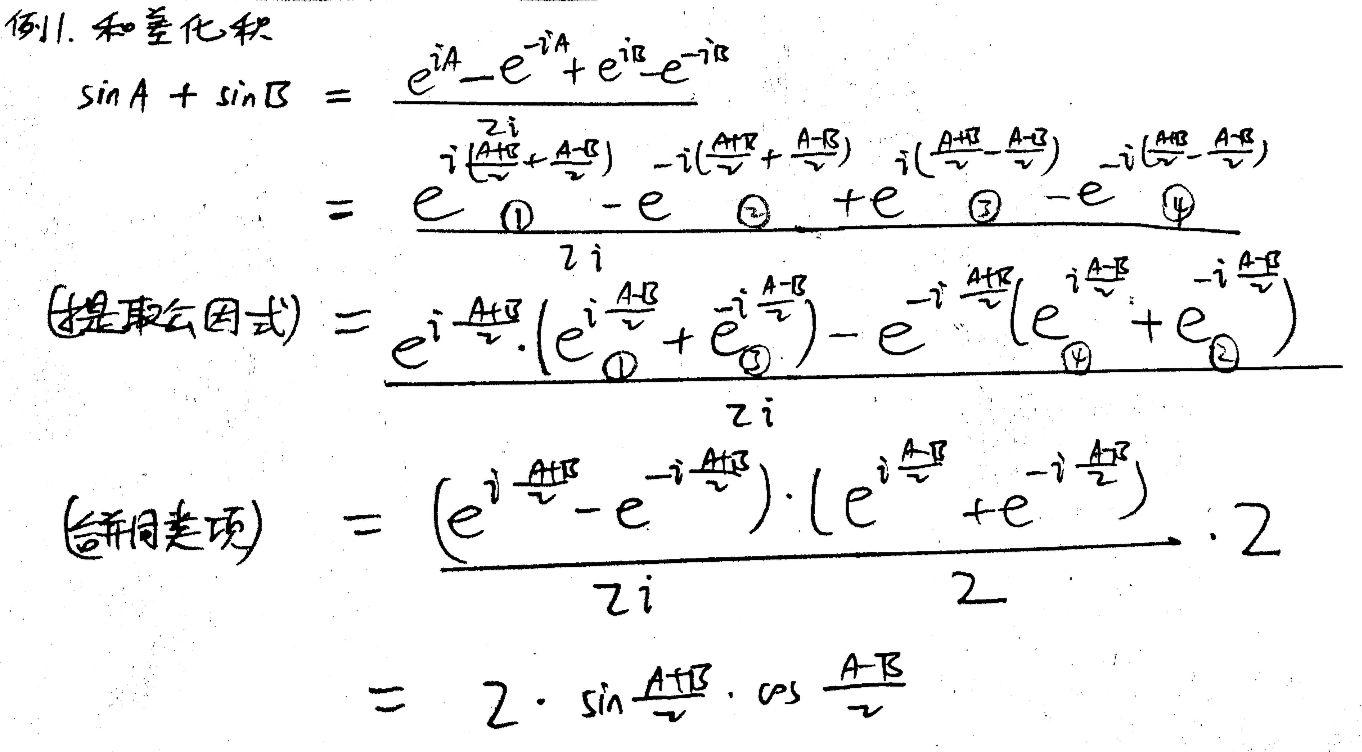 例1. 和差化积
sinA + sinB = \frac{e^{iA} - e^{-iA} + e^{iB} - e^{-iB}}{2i}
= \frac{e^{i(\frac{A+B}{2} + \frac{A-B}{2})} ① - e^{-i(\frac{A+B}{2} + \frac{A-B}{2})} ② + e^{i(\frac{A+B}{2} - \frac{A-B}{2})} ③ - e^{-i(\frac{A+B}{2} - \frac{A-B}{2})} ④}{2i}
(提取公因式) = \frac{e^{i\frac{A+B}{2}} \cdot (e^{i\frac{A-B}{2}} ① + e^{-i\frac{A-B}{2}} ③) - e^{-i\frac{A+B}{2}} (e^{i\frac{A-B}{2}} ④ + e^{-i\frac{A-B}{2}} ②)}{2i}
(合并同类项) = \frac{(e^{i\frac{A+B}{2}} - e^{-i\frac{A+B}{2}}) \cdot (e^{i\frac{A-B}{2}} + e^{-i\frac{A-B}{2}})}{2i \quad 2} \cdot 2
= 2 \cdot sin\frac{A+B}{2} \cdot cos\frac{A-B}{2}